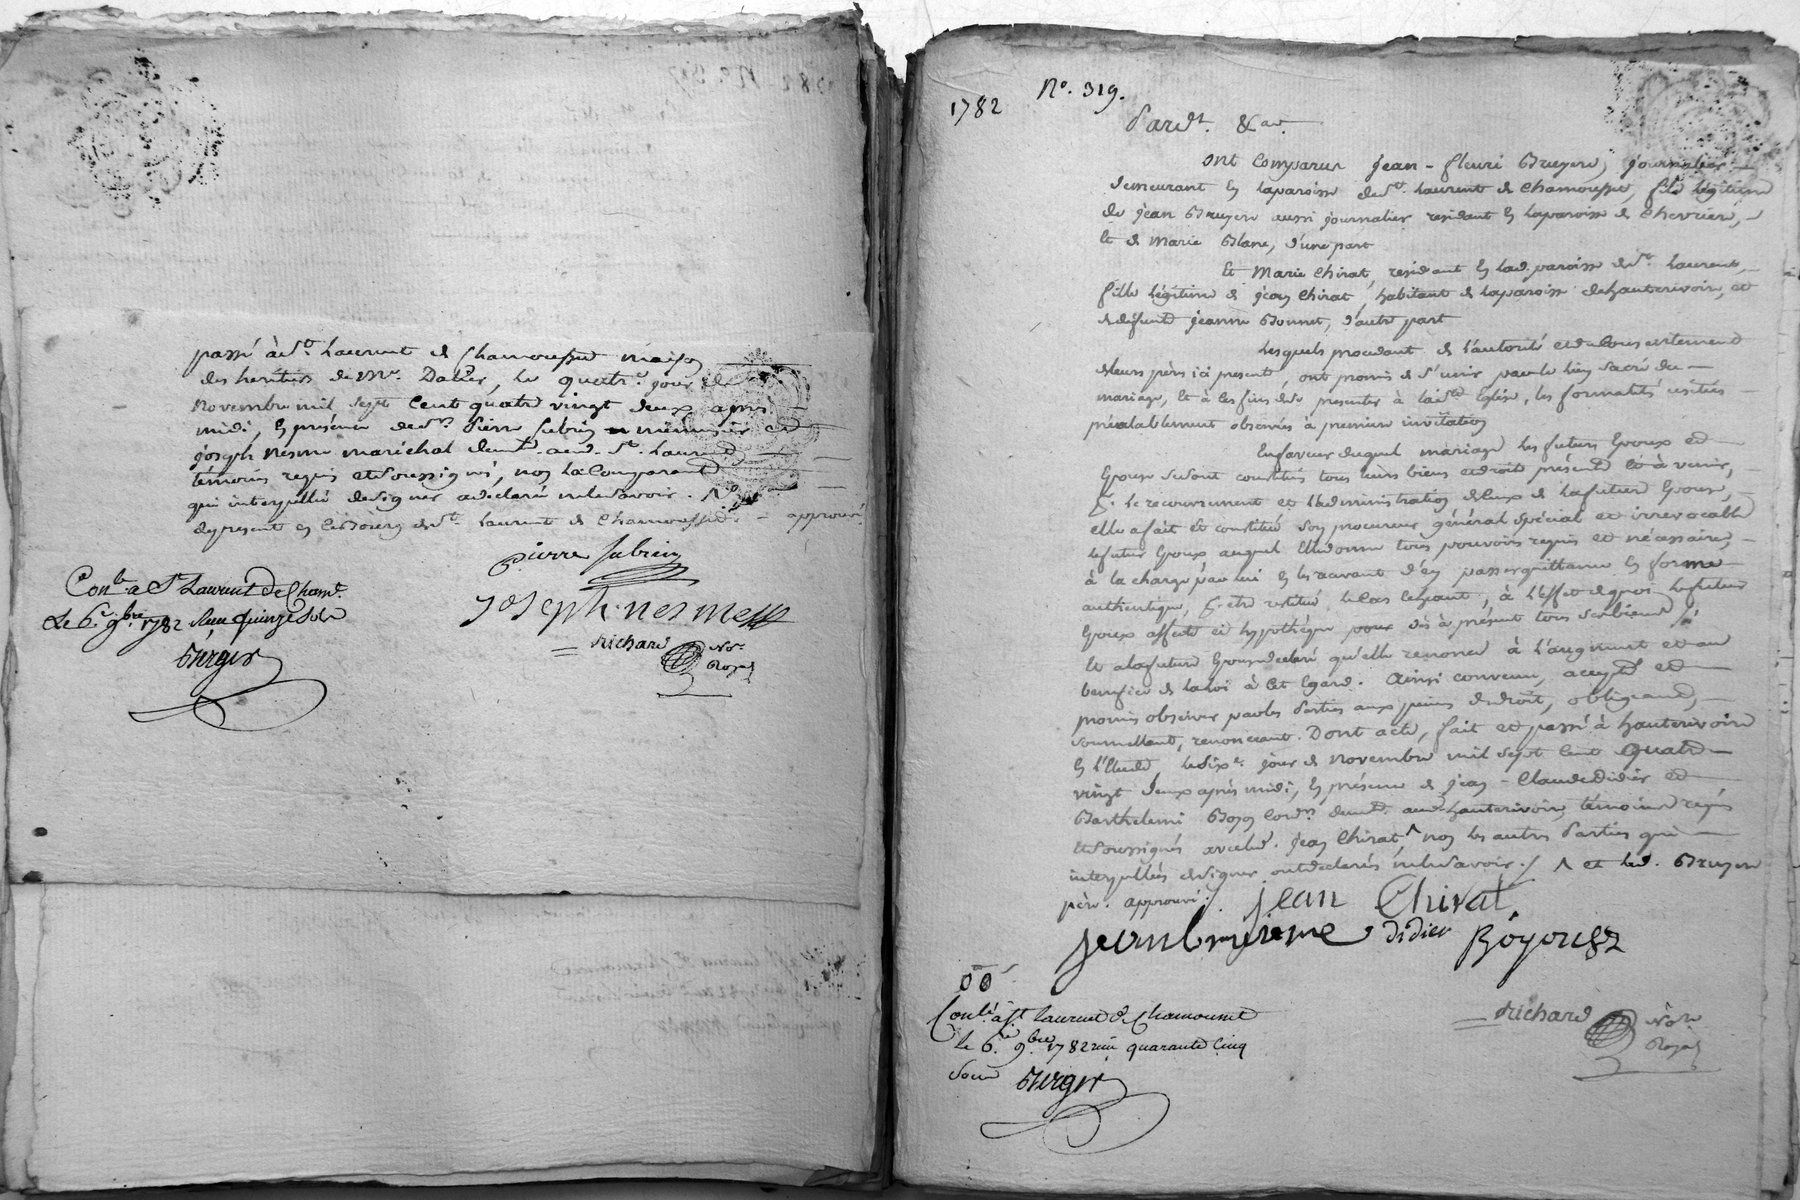 passé à St. Laurent de Chamousset maison
des heritiers de Mr. Dalier, le quatre. jour de
Novembre mil sept Cent quatre vingt deux après
midi, en présence de Sr. Pierre Subrin menuisier et
joseph Nesme maréchal demt. aud. St. Laurent
témoins requis et soussignés, non la Comparante
qui interpellée de signer a declaré ne le savoir.
de present en le Bourg de St. Laurent de Chamousset - approuvé
pierre subrin
Joseph nesme
Richard Nore. Royal
Conlé. a St Laurent De Cham.
Le 6e. 9bre. 1782 Reçu quinze Sols
Berger
1782 No. 319.
Pardt. &a.
ont Comparus jean-fleuri Bruyere, journalier
demeurant en la paroisse de St. Laurent de Chamousset, fils légitime
de jean Bruyere aussi journalier residant en la paroisse de Chevrieres,
et de Marie Blanc, d'une part
Et Marie Chirat, residante en lad. paroisse de St. Laurent,
fille légitime de jean Chirat, habitant de la paroisse de hauterivoire, et
de defunte jeanne Bonnet, d'autre part
Lesquels procedant de l'autorité et du consentement
de leurs pères ici present, ont promis de s'unir par le lien sacré du
mariage, et à ces fins de se presenter à la ste. Eglise, les formalités usitées
préalablement observées à premiere invitation
En faveur duquel mariage les futurs Epoux et
Epouse se sont constitués tous leurs biens et droits présents et à venir,
pr. le recouvrement et l'administration de ceux de la future Epouse,
elle a fait et constitué son procureur général spécial et irrevocable
le futur Epoux auquel elle donne tous pouvoirs requis et nécessaires,
à la charge par lui en les recevant d'en passer quittance en forme
authentique, pr. être restitué le cas echeant, à l'effet de quoi le futur
Epoux affecte et hypothèque pour dès à présent tous ses biens
Et a la future Epouse declaré qu'elle renonce à l'augment et au
benefice de la loi à cet egard. Ainsi convenu, accepté et
promis observer par les Parties aux peines de droit, obligeant,
soumettant, renoncant. Dont acte, fait et passé à hauterivoire
en l'Etude le six. jour de novembre mil sept Cent quatre
vingt deux après midi, en présence de jean-Claude Didier et
Barthelemi Boyon Cordr. demts. aud. hauterivoire, témoins requis
et soussignés avec led. jean Chirat ^ non les autres Parties qui
interpellées de signer ont declarés ne le savoir ./. ^ et led. Bruyere
père. approuvé ./.
jean Chirat
jean bruyere didier Boyon
Richard Nore. Royal
Conlé. a St Laurent de Chamousset
Le 6e. 9bre. 1782 reçu quarante Cinq
Sous Berger